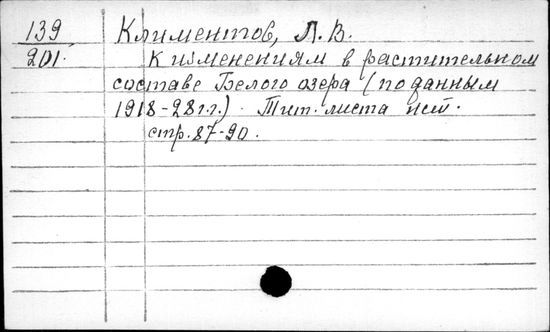 139 Климентов, Л. В.
201. К изменениям в растительном
составе Белого озера (по данным
1918-28 г.г.). Тит. листа нет.
стр. 87-90.